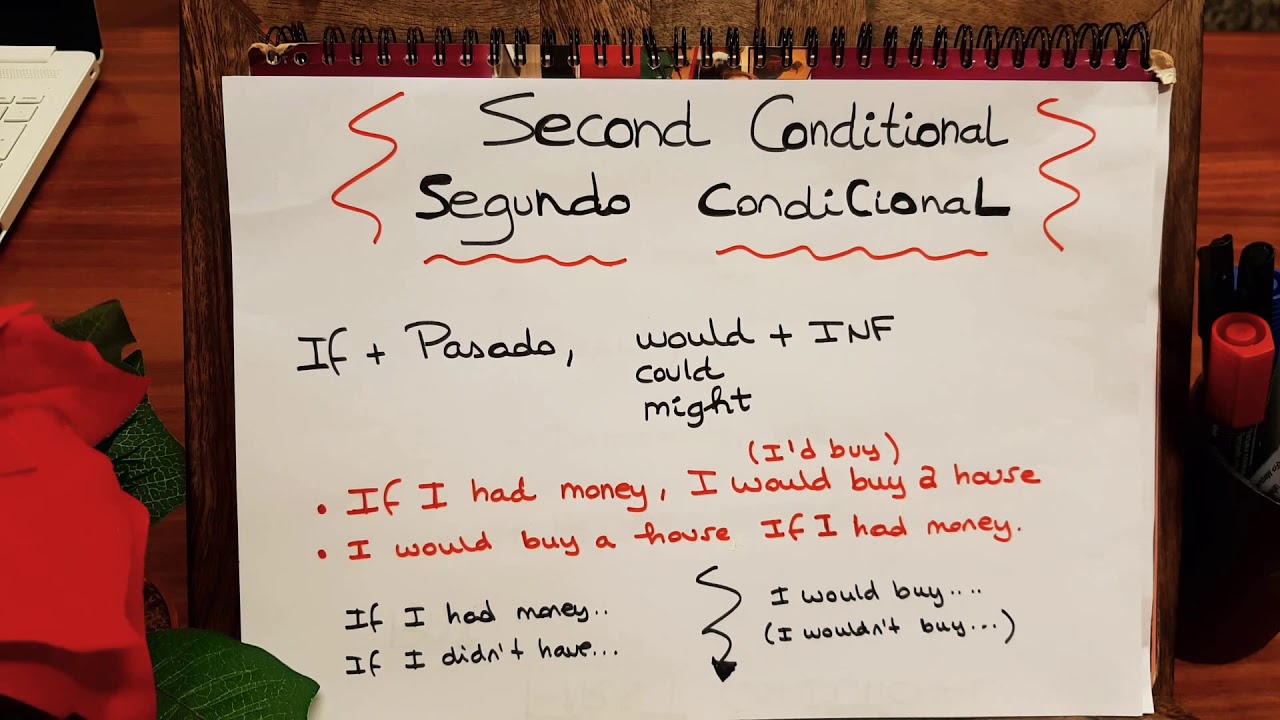 Second Conditional
Segundo CondiCionaL
If + Pasado, would + INF
could
might
(I'd buy)
• If I had money, I would buy a house
• I would buy a house If I had money.
If I had money..
If I didn't have...
I would buy....
(I wouldn't buy...)